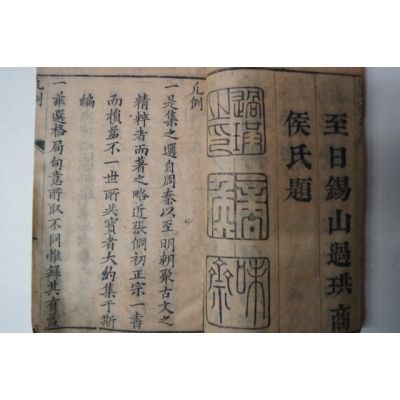 至日錫山過珙商
侯氏題
味
凡例
一是集之選自周秦以至明朝聚古文之
精粹者而著之略近張侗初正宗一書
而損益不一世所共寶者大約集于斯
編
一兼選格局句意所取不同惟錄其有益
凡例